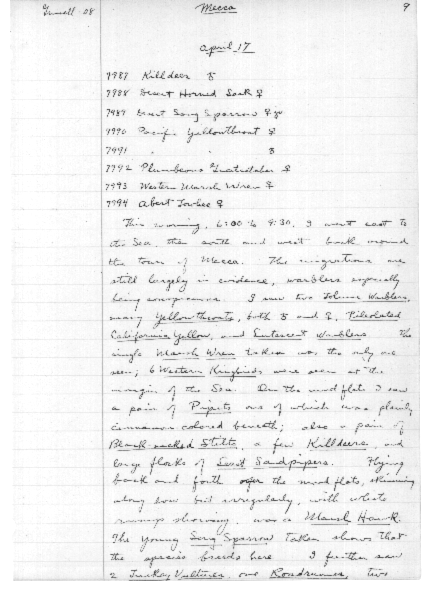 Grinnell - 08
Mecca
9
April 17
7987 Killdeer ♂
7988 Desert Horned Lark ♀
7989 Desert Song Sparrow ♀ yg
7990 Pacific Yellowthroat ♀
7991 " " ♂
7992 Plumbeous Gnatcatcher ♀
7993 Western Marsh Wren ♀
7994 Abert Towhee ♀
This morning, 6:00 to 9:30, I went east to
the Sea, then north and west back around
the town of Mecca. The migrations are
still largely in evidence, warblers especially
being conspicuous. I saw two Tolmie Warblers,
many Yellowthroats, both ♂ and ♀, Pileolated
California Yellow, and Lutescent Warblers. The
single Marsh Wren taken was the only one
seen; 6 Western Kingbirds were seen at the
margin of the Sea. On the mud flats I saw
a pair of one of which was plainly
cinnamon colored beneath; also a pair of
Black-necked Stilts, a few Killdeers, and
large flocks of Least Sandpipers. Flying
back and forth over the mud flats, skimming
along low but irregularly, with white
rumps showing, was a Marsh Hawk.
The young Song Sparrow taken shows that
the species breeds here. I further saw
2 Turkey Vultures, one Roadrunner, two